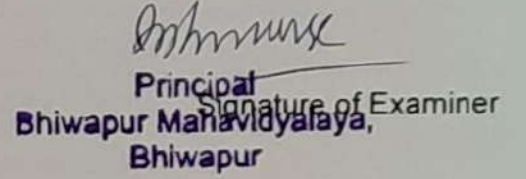 Principal
Signature of Examiner
Bhiwapur Mahavidyalaya,
Bhiwapur